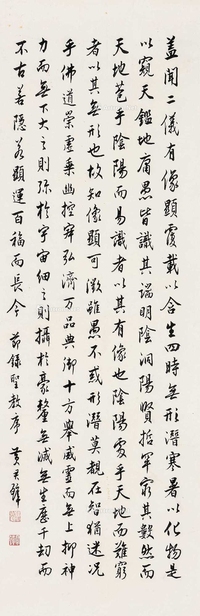 蓋聞二儀有像顯覆載以含生四時無形潛寒暑以化物是
以窺天鑑地庸愚皆識其端明陰洞陽賢哲罕窮其數然而
天地苞乎陰陽而易識者以其有像也陰陽處乎天地而難窮
者以其無形也故知像顯可徵雖愚不惑形潛莫覩在智猶迷況
乎佛道崇虛乘幽控寂弘濟万品典御十方舉威靈而無上抑神
力而無下大之則彌於宇宙細之則攝於豪釐無滅無生歷千劫而
不古若隱若顯運百福而長今 節錄聖教序 黃君璧